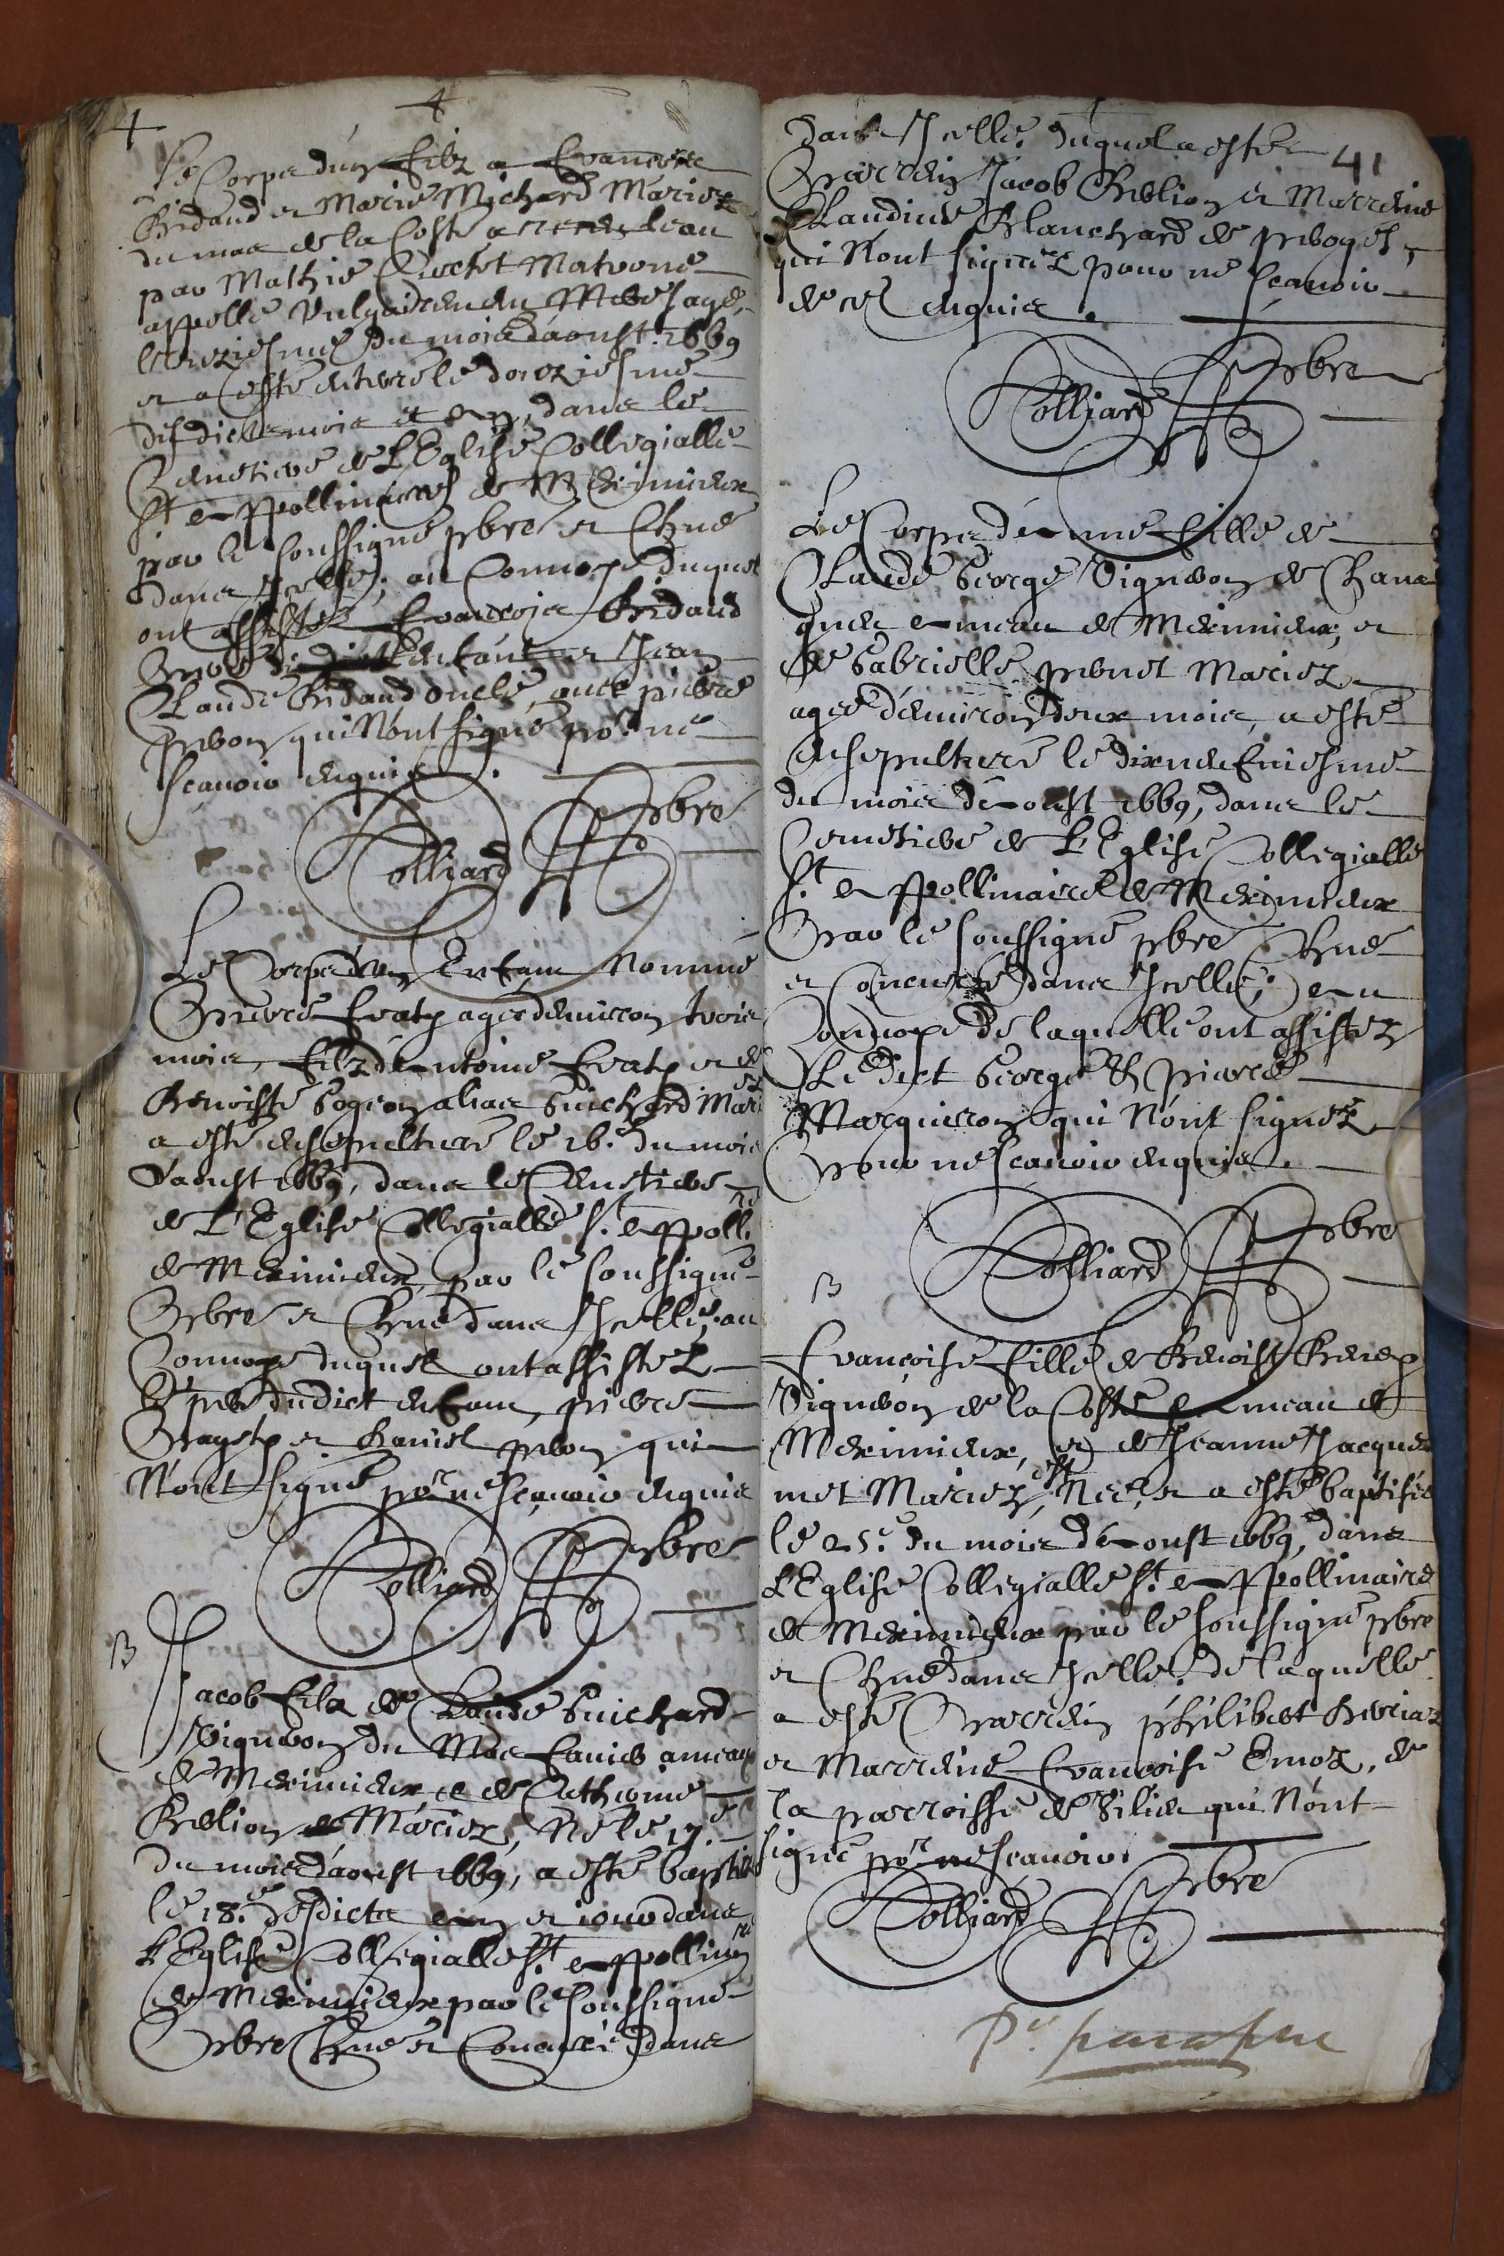 Le Corps d'un filz a francoise
Bridaud et Marie Michard Mariez
du mas de la Coste a receu leau
par Mathie Matrone
appellé vulgairement
du mois d'aoust 1669
et a esté enterré le douziesme
desdicts mois et an, dans le
Cemetiere de L'Eglise Collegialle
St Appollinaire de Meximieux
par le soussigné pbre et Chne
dans Icelle; au Convoye duquel
ont assistez francois Bridaud
pere de enfant et Jean
Claude Bridaud oncle, avec pierre
prevon qui N'ont signé por ne
scavoir enquis.
Colliard pbre
Le Corps d'un Enfant Nommé
pierre fratz agé d'environ trois
mois, filz d'Antoine fratz et de
Benoiste Bogeon alias Guichard Mariez
a esté ensepulturé le 16.e du mois
d'aoust 1669, dans le Cemetiere
de L'Eglise Collegialle St Appollre
de Meximieux par le soussigné
pbre et Chne dans Icelle, au
Convoye duquel ont assistez
le pere dudict enfant, pierre
et Daniel prevon qui
N'ont signé por ne scavoir enquis
Colliard pbre
B
Jacob filz de Claude Guichard
Vigneron du Mas hameau
de Meximieux et de Anthoinie
Brelion Mariez, Né le 17.e
du mois d'aoust 1669, a esté baptisé
le 18.e desdicts an et jour dans
L'Eglise Collegialle St Appollinre
de Meximieux par le soussigné
pbre Chne et Concuré dans
41
dans Icelle. duquel a esté
parrain Jacob Brelion et Marreine
Claudine Blanchard de proges,
qui N'ont signez pour ne scavoir
de ce enquis.
Colliard pbre
Le Corps d'une fille de
Claude George Vigneron de Chane
hameau de Meximieux, et
de Gabrielle prevot Mariez
agée d'environ deux mois, a esté
ensepulturé le dixneufviesme
du mois d'Aoust 1669, dans le
Cemetiere de L'Eglise Collegialle
St Appollinaire de Meximieux
par le soussigné pbre Chne
et Concuré dans Icelle; au
Convoye de laquelle ont assistez
Ledict George & pierre
Marquiron qui N'ont signez
pour ne scavoir enquis.
Colliard pbre
B
francoise fille de Benoist
Vigneron de la Coste hameau de
Meximieux, et de Jeanne Jacque
met Mariez, est Née, et a esté baptisée
le 25.e du mois d'Aoust 1669, dans
L'Eglise Collegialle St Appollinaire
de Meximieux par le soussigné pbre
et Chne dans Icelle. de laquelle
a esté parrein philibert
et Marreine francoise de
la parroisse de qui N'ont
signé por ne scavoir.
Colliard pbre
paraphe